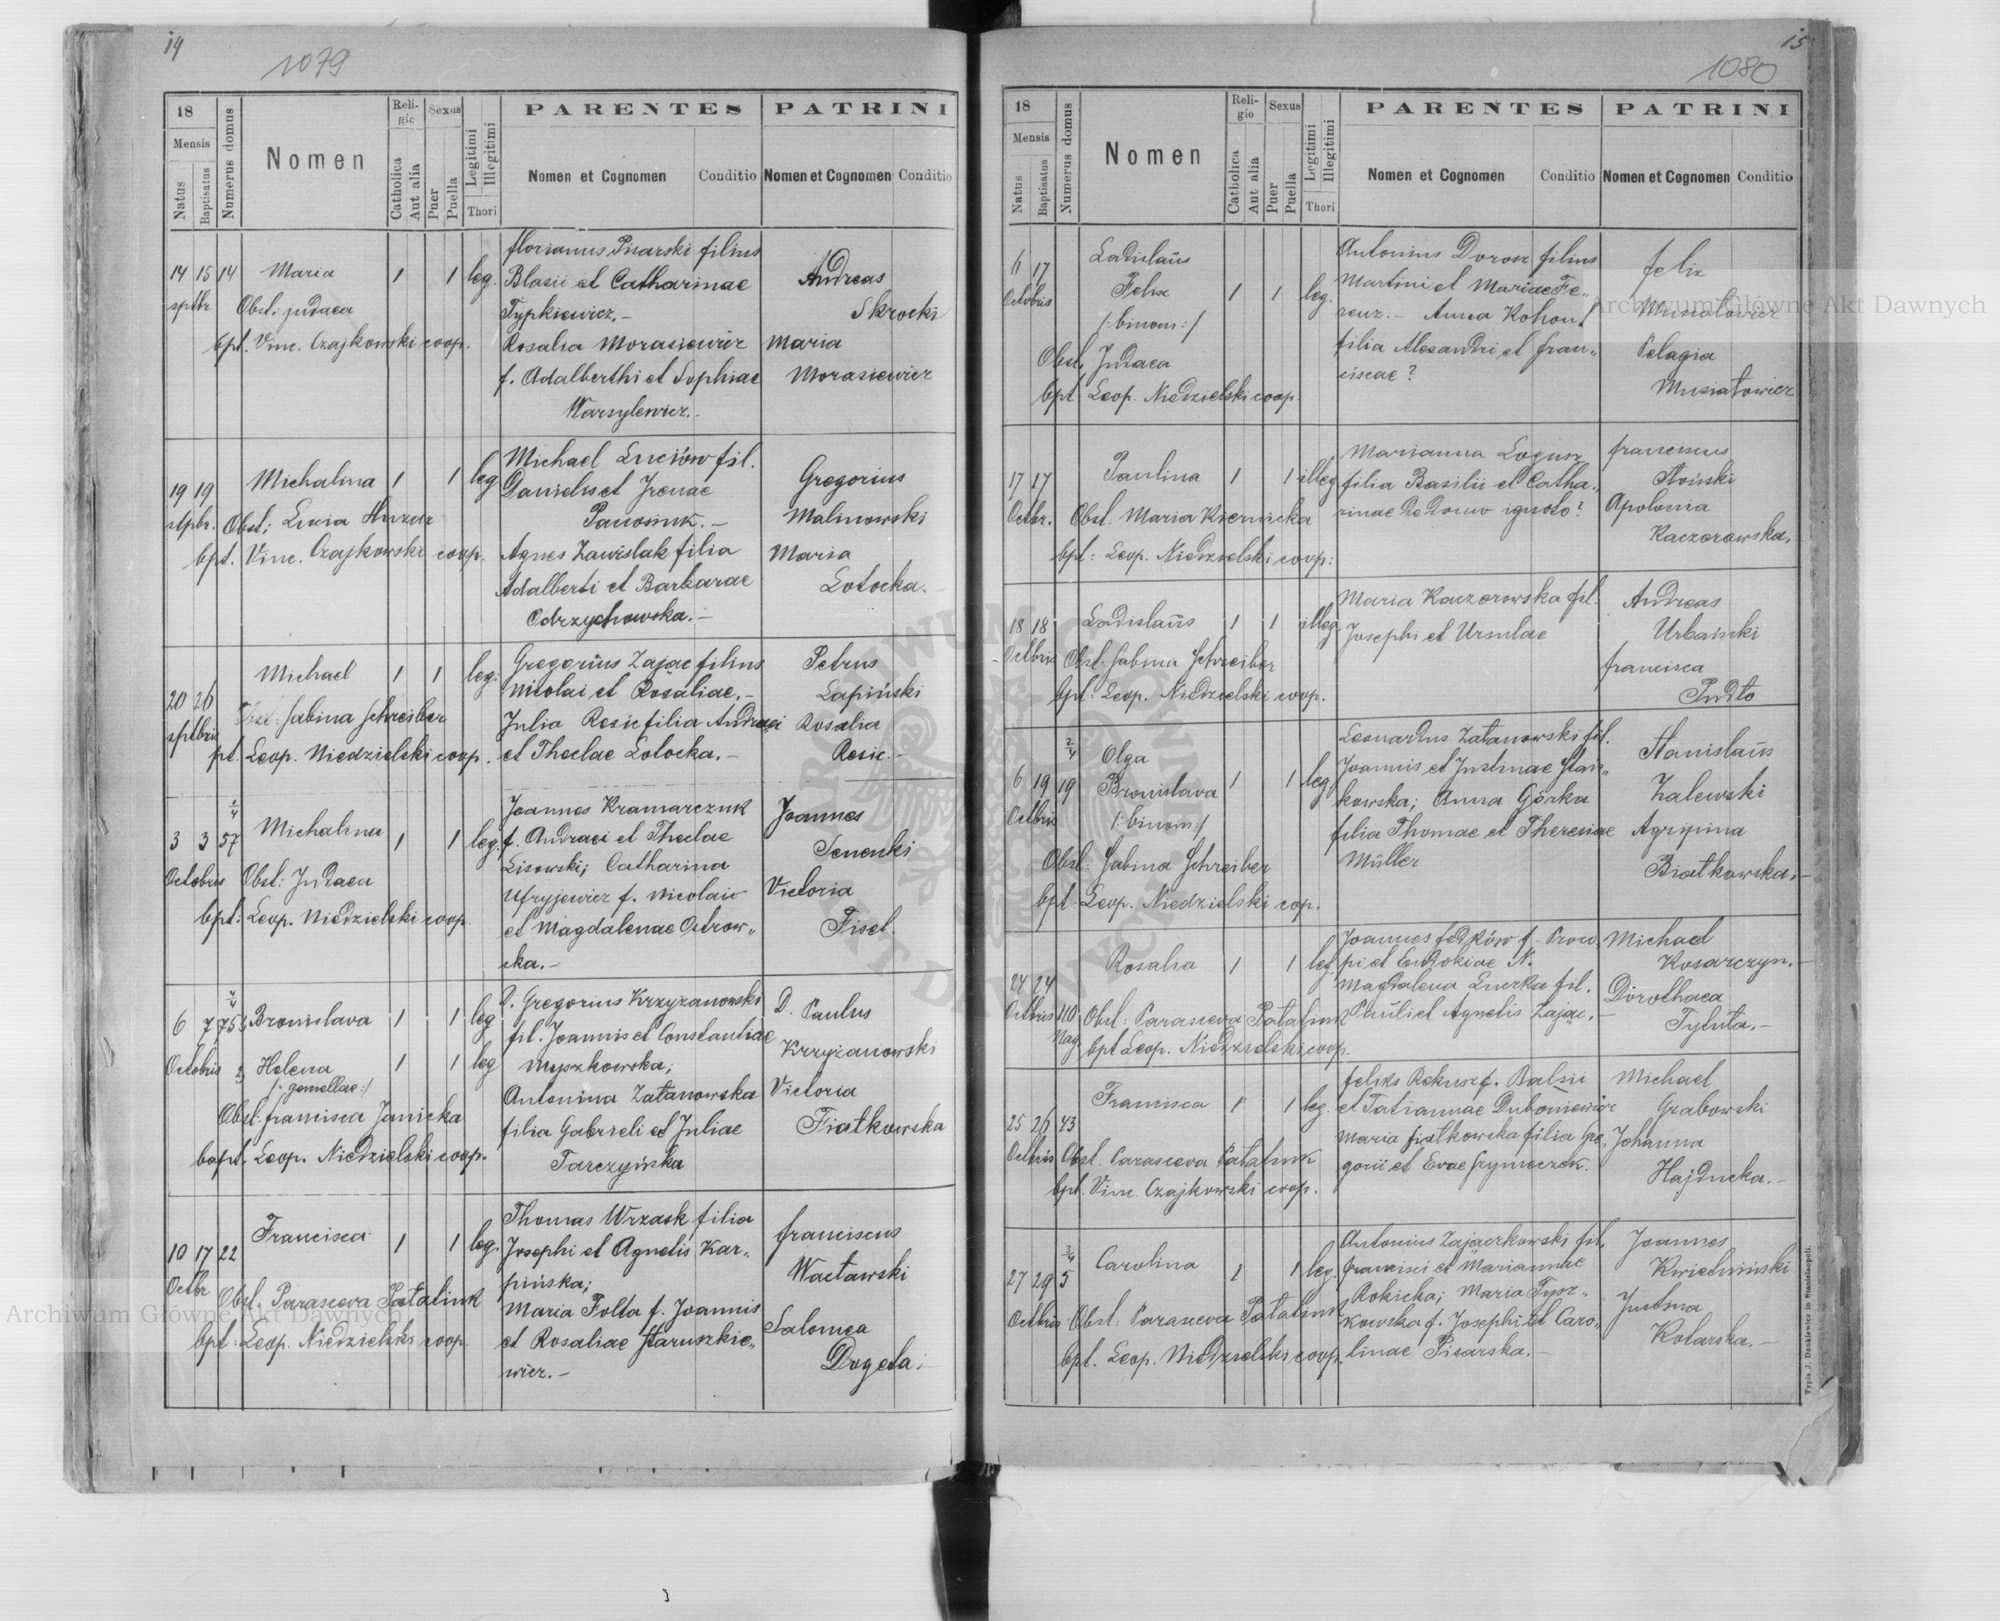 14
1079
18
Mensis
Natus
Baptisatus
Numerus domus
Nomen
Religio
Catholica
Aut alia
Sexus
Puer
Puella
Legitimi
Illegitimi
Thori
PARENTES
Nomen et Cognomen
Conditio
PATRINI
Nomen et Cognomen
Conditio
14 15 14 Maria 1 1 leg.
sptbr. Obst. judaea
bpt. Vinc. Czajkowski coop.
florianus Pisarski filius
Blasii et Catharinae
Typkiewicz.-
Rosalia Morasiewicz
f. Adalberthi et Sophiae
Warsylewicz.-
Andreas
Skrocki
Maria
Morasiewicz
19 19 Michalina 1 1 leg
stpbr. Obst: Lucia Huzar
bpt. Vinc. Czajkowski coop.
Michael Luciów fil.
Danielis et Irenae
Panosiuk.-
Agnes Zawislak filia
Adalberti et Barbarae
Odrzychowska.-
Gregorius
Malinowski
Maria
Lotocka.-
20 26 Michael 1 1 leg:
sptbris Obst: Sabina Schreiber
pt. Leop. Niedzielski coop.
Gregorius Zając filius
Nicolai et Rosaliae.-
Julia Resic filia Andraei
et Theclae Lotocka.-
Petrus
Lapiński
Rosalia
Resic.-
3 3 57 1/4 Michalina 1 1 leg.
Octobris Obst: Judaea
bpt: Leop. Niedzielski coop.
Joannes Kramarczuk
f. Andraei et Theclae
Lisowski; Catharina
Ufryjewicz f. Nicolai
et Magdalenae Ostrow„
ska.-
Joannes
Senenki
Victoria
Fisel.
6 7 Bronislava 1 1 leg
Octobris Helena 1 1 leg
/: gemellae:/
Obst. francisca Janicka
bapt. Leop. Niedzielski coop.
D. Gregorius Krzyzanowski
fil. Joannis et Constantiae
Myszkowska;
Antonina Zatanowska
filia Gabrieli et Juliae
Tarczyńska
D. Paulus
Krzyżanowski
Victoria
Fiatkowska
10 17 22 Francisca 1 1 leg.
Octbr Obst. Parasceva Patatiuk
bpt: Leop. Niedzielski coop.
Thomas Wrzask filia
Josephi et Agnetis Kar„
pińska;
Maria Folta f. Joannis
et Rosaliae Staruszkie„
wicz.-
franciscus
Wactawski
Salomea
Dogeta.-
15
1080
18
Mensis
Natus
Baptisatus
Numerus domus
Nomen
Religio
Catholica
Aut alia
Sexus
Puer
Puella
Legitimi
Illegitimi
Thori
PARENTES
Nomen et Cognomen
Conditio
PATRINI
Nomen et Cognomen
Conditio
6 17 Ladislaus
Octobris Felix 1 1 leg.
/:binom:/
Obst. Judaea
bpt: Leop. Niedzielski coop.
Antonius Dorosz filius
Martini et Mariae Fe„
renz.- Anna Kohout
filia Alexandri et fran„
ciscae?
felix
Musiatowicz
Pelagia
Musiatowicz
17 17 Paulina 1 1 illeg
Octbr. Obst: Maria Kiernicka
bpt: Leop. Niedzielski coop:
Marianna Logusz
filia Basilii et Catha„
rinae de domo ignoto?
franciscus
Apolonia
Kaczorowska.
18 18 Ladislaus 1 1 illeg.
Octbris Obst: Sabina Schreiber
bpt: Leop. Niedzielski coop.
Maria Kaczorowska fil.
Josephi et Ursulae
Andreas
Urbański
francisca
Pudto
2/4 Olga
6 19 19 Bronislava 1 1 leg
Octbris /:binom:/
Obst: Sabina Schreiber
bpt: Leop. Niedzielski cop.
Leonardus Zatanowski fil.
Joannis et Justinae Stan„
kowska; Anna Górka
filia Thomae et Theresiae
Müller
Stanislaus
Zalewski
Agripina
Biatkowska.-
24 24 Rosalia 1 1 leg.
Octbris 110 Obst: Parasceva Patatiuk
bpt Leop. Niedzielski coop.
Joannes Fedków f. Proco„
pi et Eudokiae N.
Magdalena Lucrka fil.
Pauli et Agnetis Zając.-
Michael
Kosarczyn.-
Dorothaea
Tyluta.-
25 26 43 Francisca 1 1 leg.
Octbris Obst. Parasceva Patatiuk
bpt. Vinc. Czajkowski coop.
feliks Rekusz f. Balsii
et Tatiannae Duboniewicz
Maria fiatkowska filia Gre„
gorii et Evae Szymeczek.
Michael
Grabowski
Johanna
Hajducka.-
27 29 5 3/4 Carolina 1 1 leg.
Octbris Obst: Parasceva Patatiuk
bpt. Leop. Niedzielski coop.
Antonius Zajączkowski fil.
francisci et Mariannae
Rokicka; Maria Tysz„
kowska f. Josephi et Caro„
linae Pisarska.-
Joannes
Kwietniński
Justina
Kolarska.-
Typis J. Dankiewicz in Stanislaopoli.
Archiwum Główne Akt Dawnych
Archiwum Główne Akt Dawnych